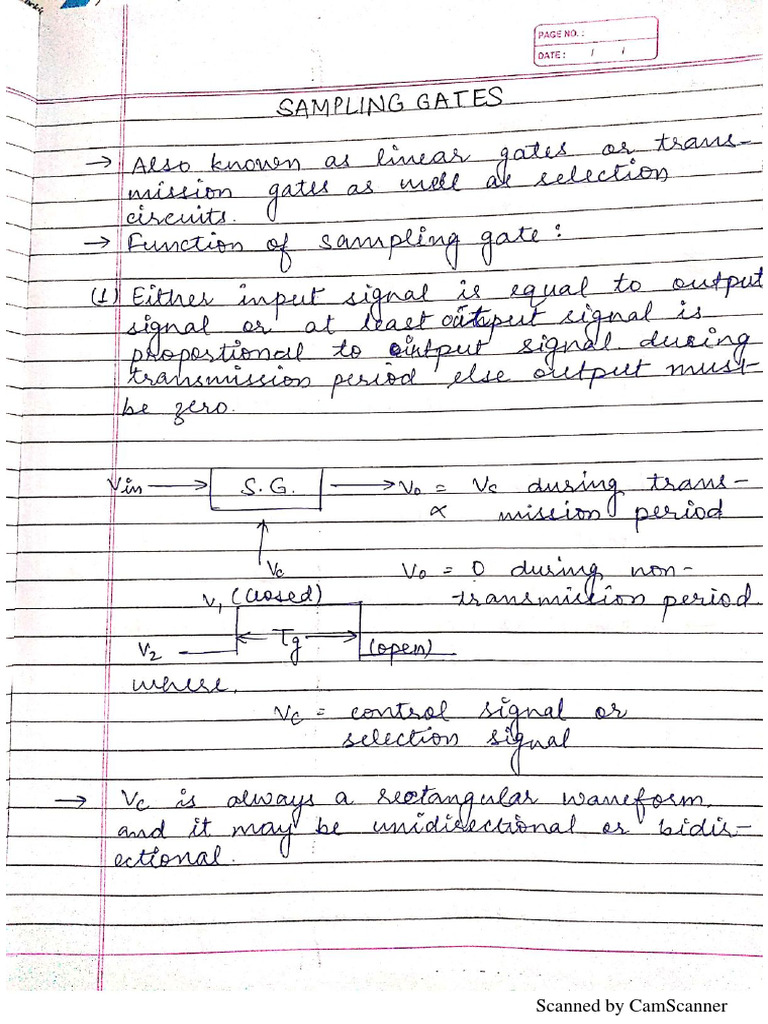 PAGE NO. :
DATE : / /
SAMPLING GATES
→ Also known as linear gates or trans-
mission gates as well as selection
circuits.
→ Function of sampling gate :
(1) Either input signal is equal to output
signal or at least output signal is
proportional to input signal during
transmission period else output must
be zero.
Vin → S.G. → Vo = Vc during trans-
∝ mission period
Vc Vo = 0 during non-
V1 (closed) transmission period
Tg
V2 (open)
where,
Vc = control signal or
selection signal
→ Vc is always a rectangular waveform
and it may be unidirectional or bidir-
ectional.
Scanned by CamScanner